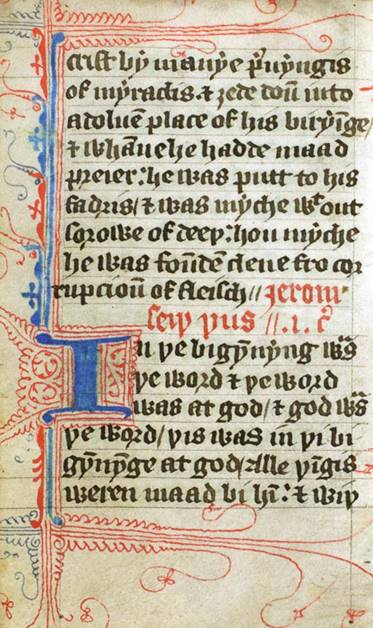 crist bẏ manẏe pᵉuẏngis
of mẏraclis. ⁊ ȝede doū into
a doluē place of his birẏīge/
⁊ whāne he hadde maad
preier: he was putt to his
fadris/ ⁊ was mẏche wᵗ out
sorowe of deeþ: hou mẏche
he was foūdē clene fro cor
rupcioū of fleisch// Jerom
seiþ þus //.i. c̊
In þe bigẏnẏng wᵃs
þe word ⁊ þe word
was at god/ ⁊ god wᵃs
þe word/ þis was in þi bi
gẏnẏge at god/ Alle þīgis
weren maad bi hī: ⁊ wiþ